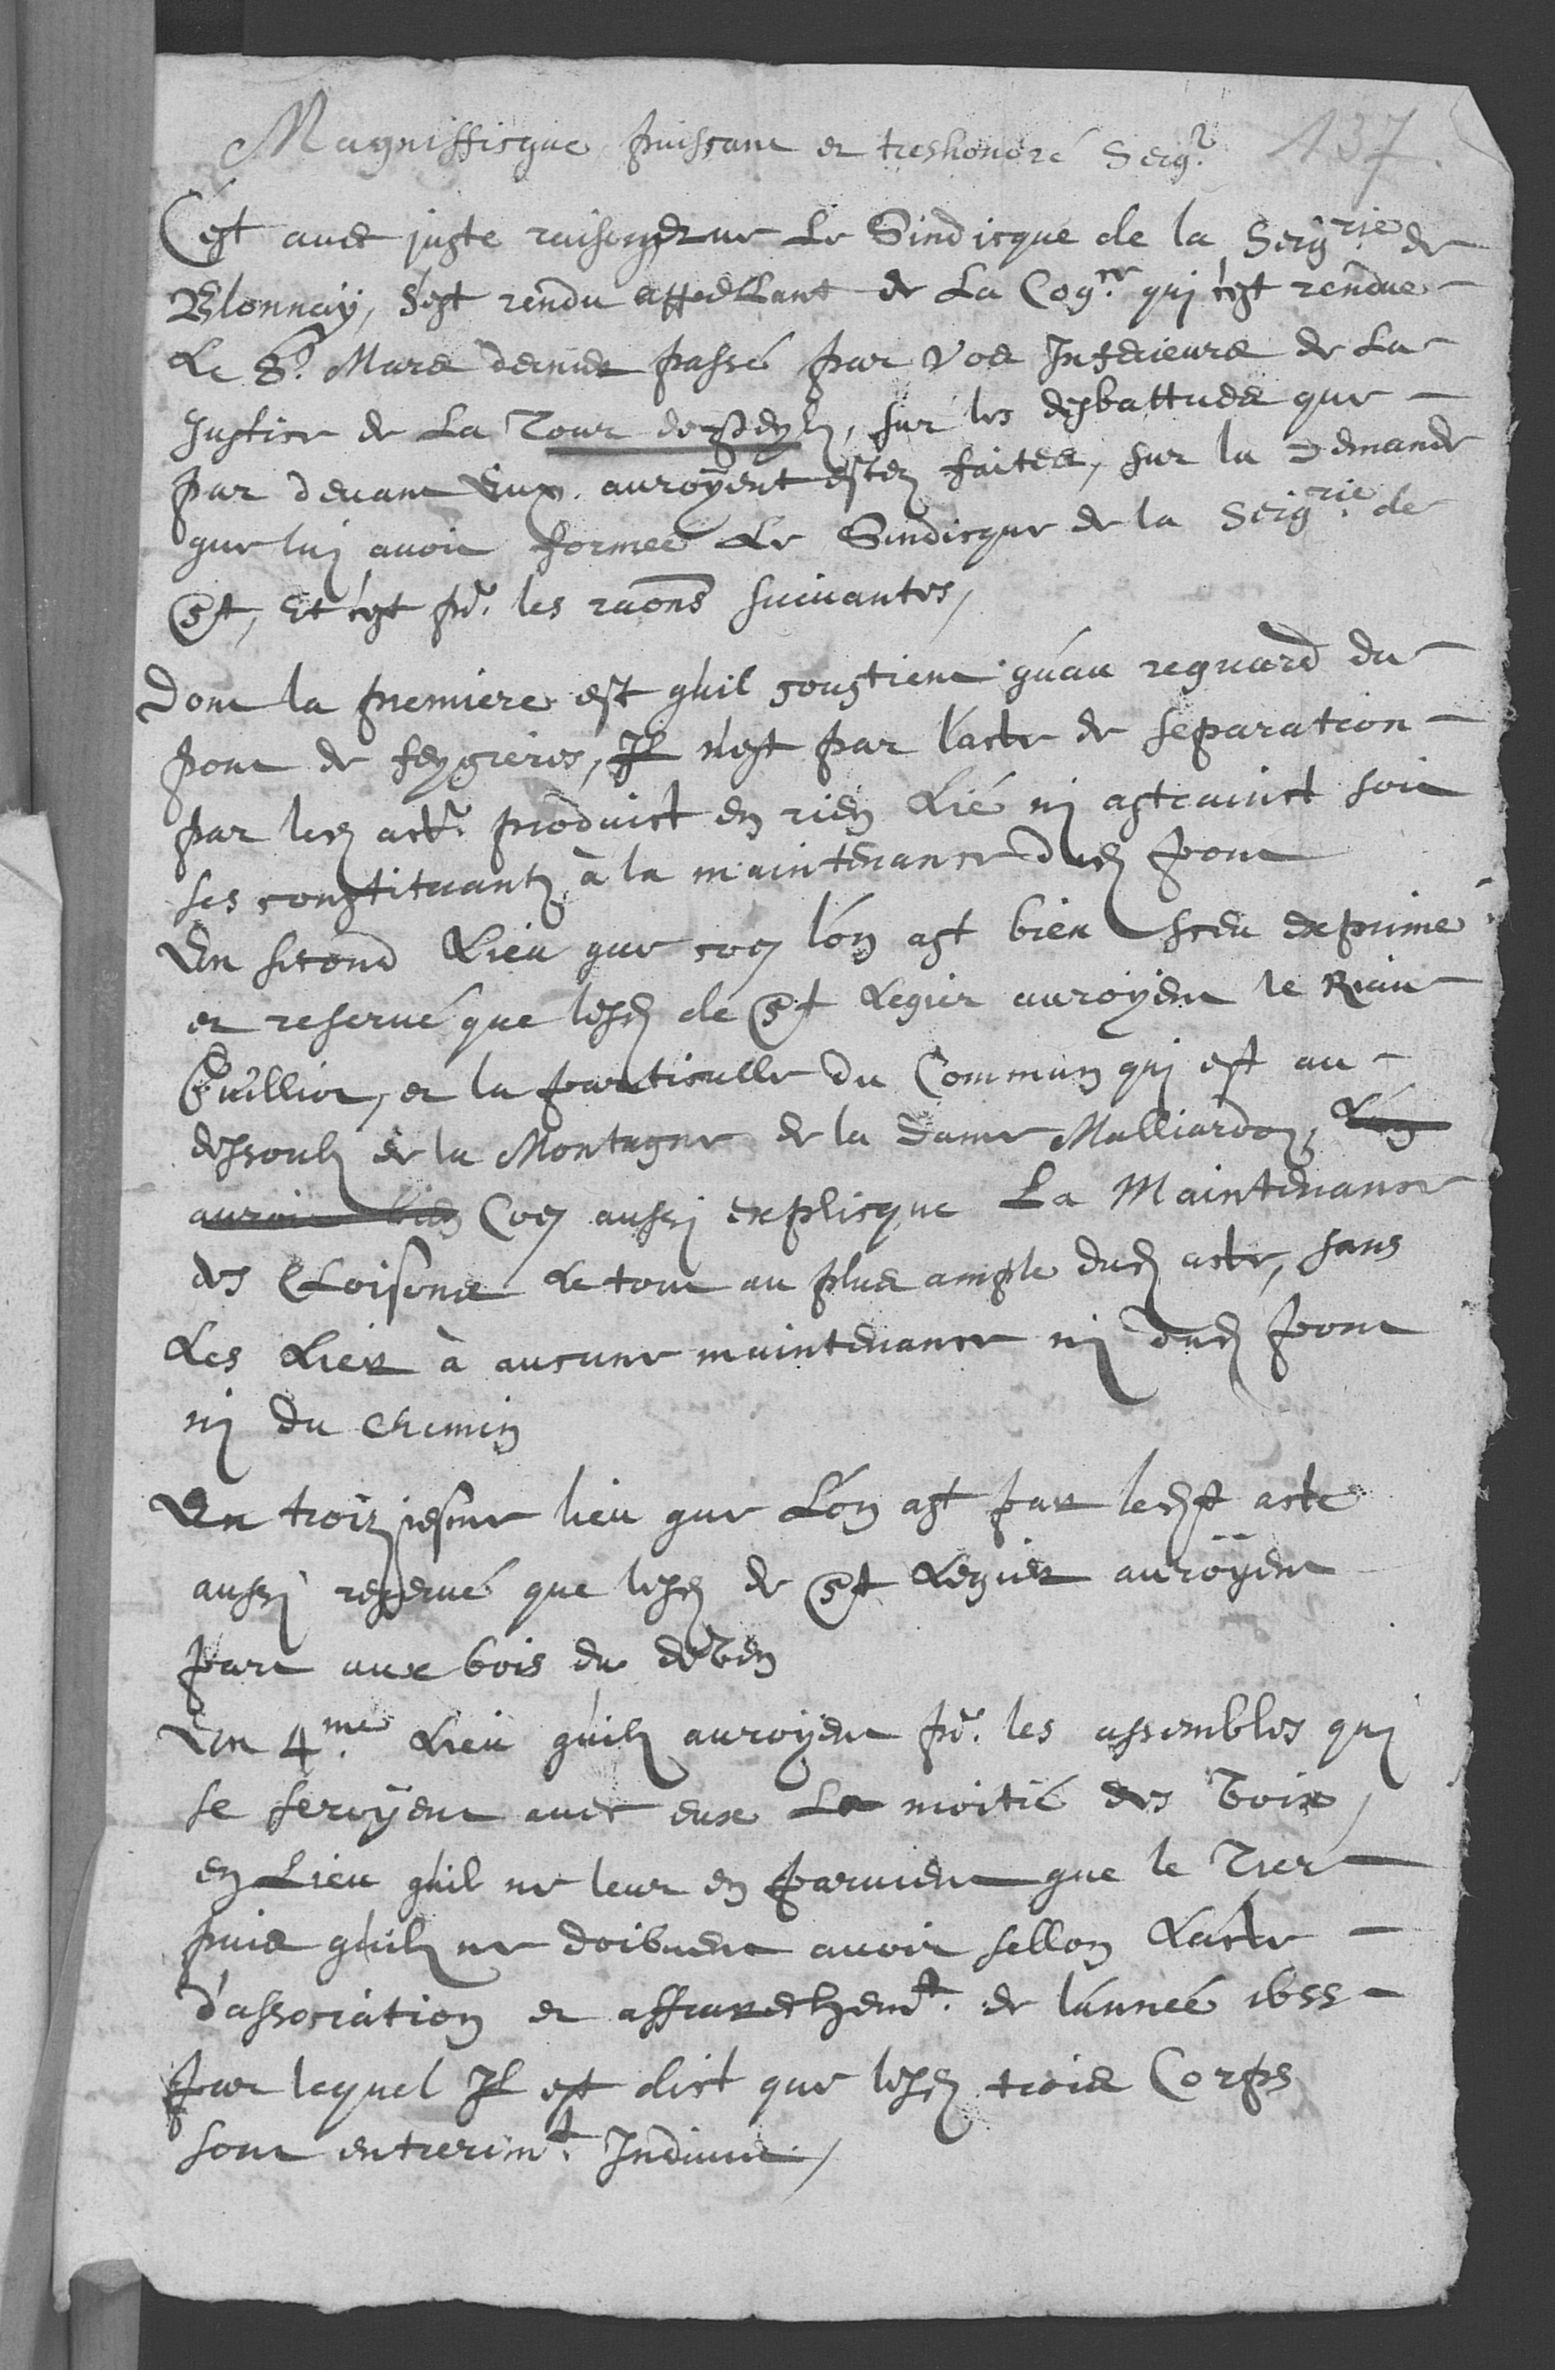 Magniffisque puissant et treshonoré Seigr. 137.
C'est avec juste raison que Le Sindicque de la Seigrie de
Blonnay, S'est rendu appellant de La Cogce qui s'est rendue
Le 8e. Mars dernier passé par Vos Inferieurs de La
Justice de La Tour de Peylz, sur les desbattues que
par devant Eux auroÿent estez faites, sur la Demande
que luy avoit formeé Le Sindicque de la Seigrie. de
St, Et c'est pr. les raons suivantes,
Dont la premiere est quil soustient qu'au reguard du
pont de feygieres, Il n'est par l'acte de separation
par led act. produict en rien Lié ni astrainct soit
ses constituants à la maintenance dud pont
En second Lieu que coe l'on ast bien sceu exprimé
et reservé que lesd de St Legier auroÿent le Riau
Cuillier, et la particulle du Commun qui est au
dessoub de la Montagne de la dame Malliardoz, L'on
auroit bien Coe aussi explicque La Maintenance
des Cloisons Le tout au plus ample dud acte, sans
Les Lier à aucune maintenance ni dud pont
ni du chemin
En troiziesme lieu que L'on ast par ledst acte
aussi reservé que lesd de St Legier auroÿent
part aux bois du deven
En 4me. Lieu quilz auroÿent pr. les assembles qui
se feroÿent avec eux La moitié des Voix,
en Lieu quil ne leur en parvient que le Tier
puis quilz ne doibvent avoir sellon L'acte
d'association et affranchemt. de l'anneé 1655
par lequel Il est dict que lesd trois Corps
sont entierimt. Indivis,